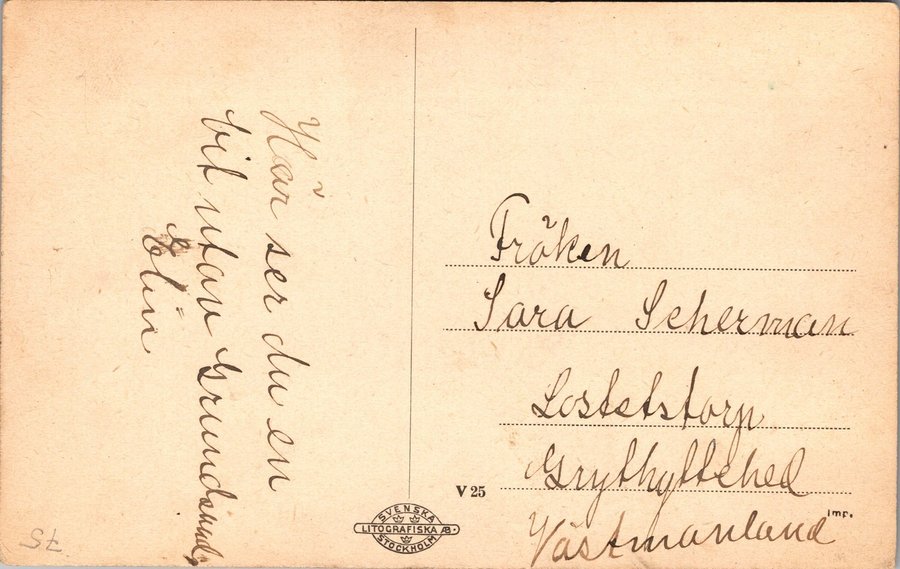 Här ser du en
bit utav Grundsund
Elin
Fröken
Sara Scherman
Loststorp
Grythyttehed
Västmanland
V 25
SVENSKA
LITOGRAFISKA AB.
STOCKHOLM
Imp.
75